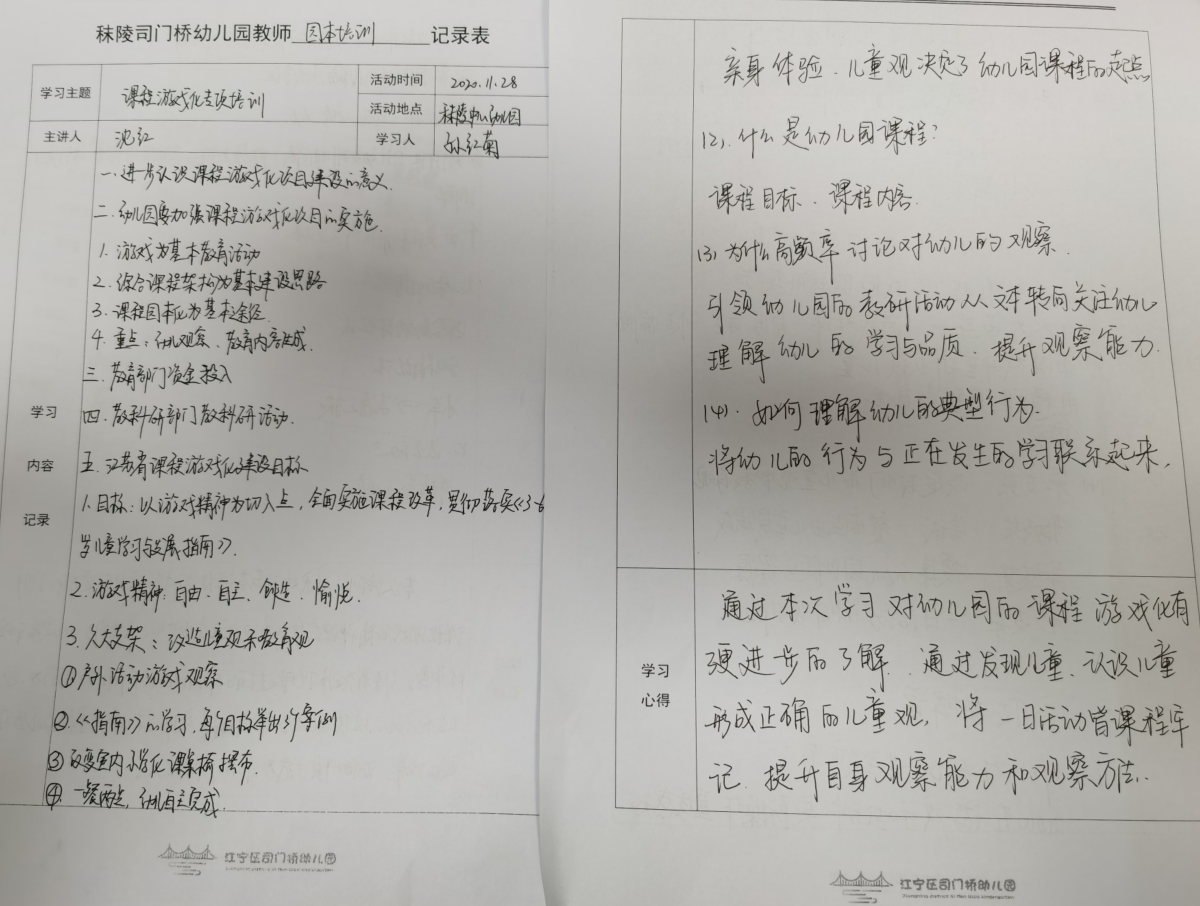 秣陵司门桥幼儿园教师 园本培训 记录表
学习主题 课程游戏化专项培训 活动时间 2020.11.28
活动地点 秣陵中心幼儿园
主讲人 沈红 学习人 孙红菊
学习
内容
记录
一.进一步认识课程游戏化项目建设的意义.
二.幼儿园要加强课程游戏化项目的实施.
1.游戏为基本教育活动
2.综合课程架构为基本建设思路
3.课程园本化为基本途径.
4.重点:幼儿观察、教育内容生成.
三.教育部门资金投入
四.教科研部门教科研活动.
五.江苏省课程游戏化建设目标
1.目标:以游戏精神为切入点,全面实施课程改革,贯彻落实《3-6
岁儿童学习与发展指南》.
2.游戏精神:自由.自主、创造、愉悦.
3.六大支架:改造儿童观和教育观
①户外活动游戏观察
②《指南》的学习,每个目标举出3个案例
③改变室内小学化课桌椅摆布.
④.一餐两点,幼儿自主完成.
江宁区司门桥幼儿园
亲身体验.儿童观决定了幼儿园课程的起点
(2).什么是幼儿园课程?
课程目标、课程内容.
(3)为什么高频率讨论对幼儿的观察.
引领幼儿园的教研活动从文本转向关注幼儿
理解幼儿的学习与品质.提升观察能力.
(4).如何理解幼儿的典型行为.
将幼儿的行为与正在发生的学习联系起来.
学习
心得
通过本次学习对幼儿园的课程游戏化有
了更进一步的了解.通过发现儿童、认识儿童
形成正确的儿童观,将一日活动皆课程牢
记.提升自身观察能力和观察方法.
江宁区司门桥幼儿园